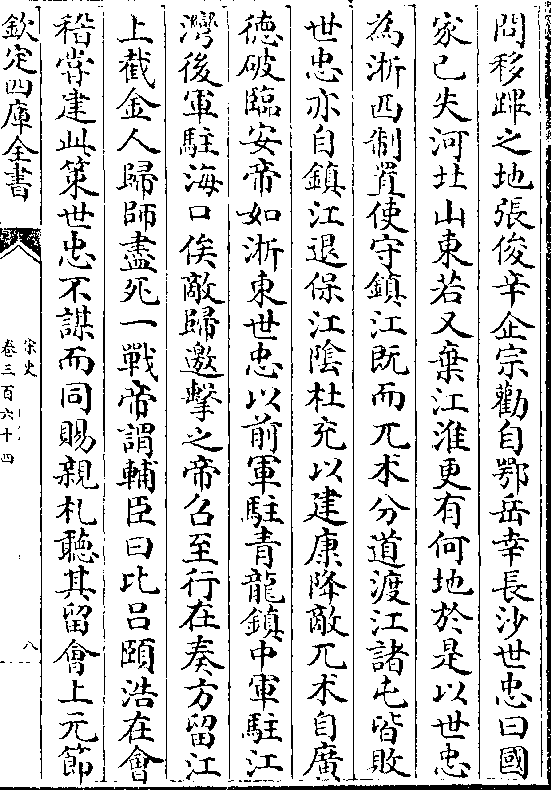 問移蹕之地張俊辛企宗勸自鄂岳幸長沙世忠曰國
家已失河北山東若又棄江淮更有何地於是以世忠
為浙西制置使守鎮江既而兀术分道渡江諸屯皆敗
世忠亦自鎮江退保江陰杜充以建康降敵兀术自廣
徳破臨安帝如浙東世忠以前軍駐青龍鎮中軍駐江
灣後軍駐海口俟敵歸邀擊之帝召至行在奏方留江
上截金人歸師盡死一戰帝謂輔臣曰比吕頤浩在會
稽嘗建此策世忠不謀而同賜親札聽其留會上元節
欽定四庫全書
宋史
卷三百六十四
八